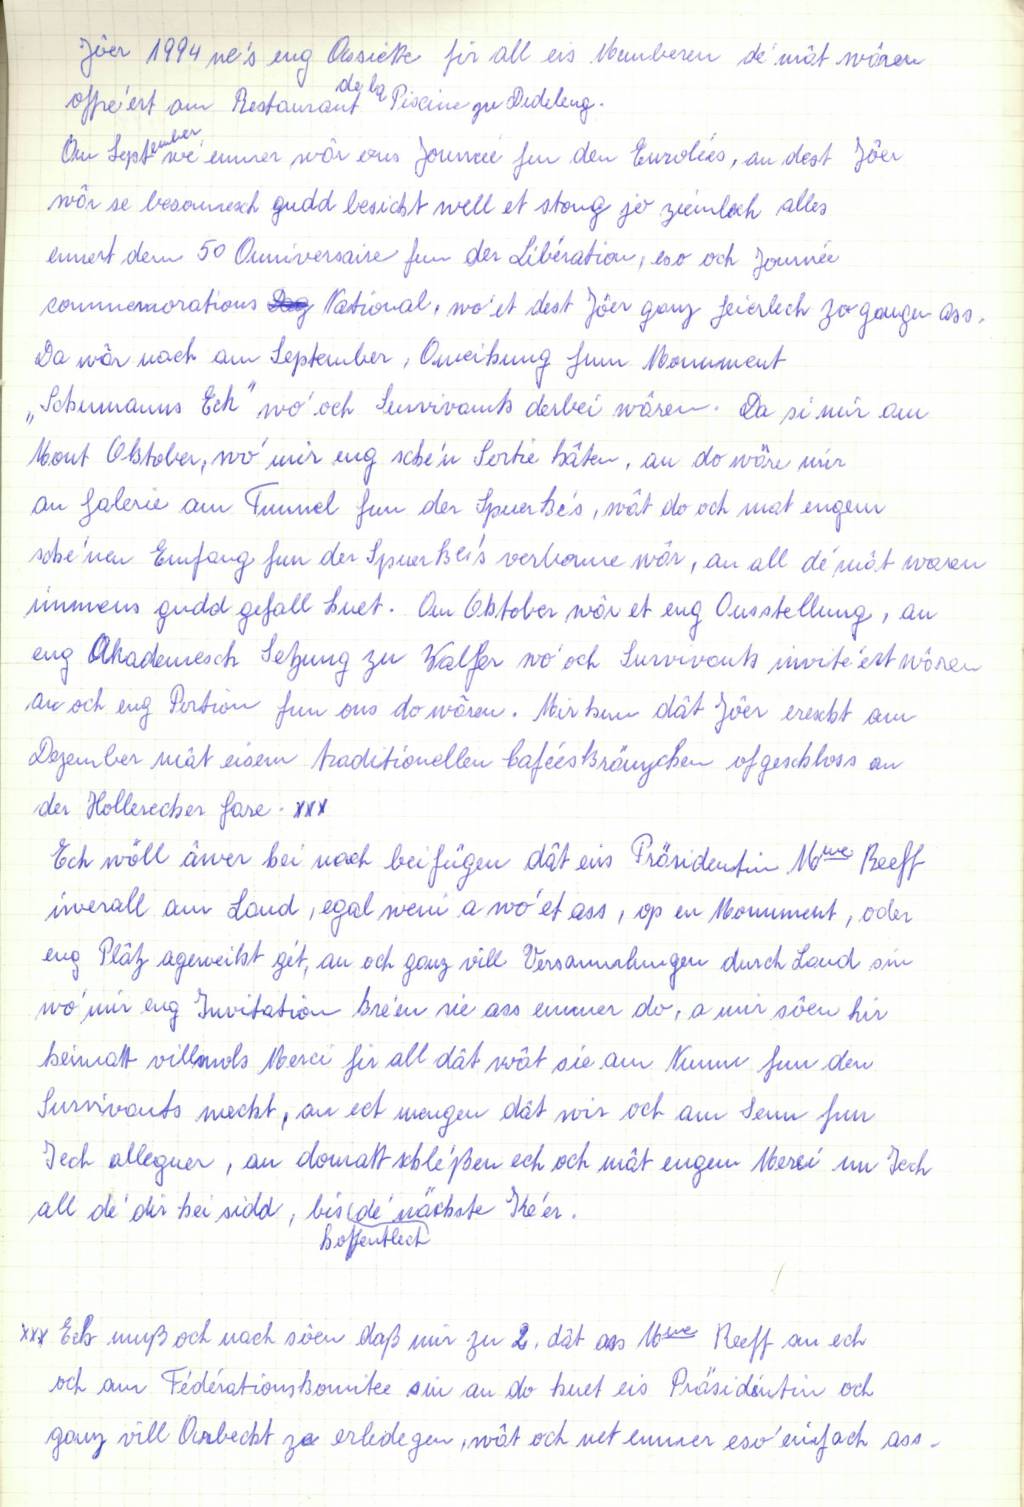 Jôer 1994 ne's eng Assiette fir all eis Memberen de' mat wâren
offre'ert am Restaurant de la Piscine zu Dideleng.
Am September we' ëmmer wôr ons Journeé fun den Enrolées, an dest Jôer
wôr se besonnesch gudd besicht well et stong jo ziemlech alles
ennert dem 50 Anniversaire fun der Libération, eso och Journée
commemorations National, wo' et dest Jôer ganz feierlech zogangen ass.
Da wôr nach am September, Aweihung fum Monument
„Schumanns Eck" wo' och Survivants derbei wâren. Da si mir am
Mont Oktober, wo' mir eng sche'n Sortie hâten, an do wâre mir
an Galerie am Tunnel fun der Spuerke's, wât do och mat engem
sche'nen Emfang fun der Spuerkei's verbonne wôr, an all de' mât waren
immens gudd gefall huet. Am Oktober wôr et eng Ausstellung, an
eng Akademesch Setzung zu Walfer wo' och Survivants invite'ert wôren
an och eng Portion fun ons do wâren. Mir hun dât Jôer erecht am
Dezember mât eisem traditionellen Caféeskränzchen ofgeschloss an
der Hollerecher Gare. xxx
Ech wöll âwer hei nach beifügen dât eis Präsidentin Mme Reeff
iwerall am Land, egal weini a wo' et ass, op en Monument, oder
eng Plâtz ageweiht gët, an och ganz vill Versammlungen durch Land sin
wo' mir eng Invitation kre'en sie ass emmer do, a mir sôen hir
heimatt villmols Merci fir all dât wât sie am Numm fun den
Survivants mecht, an ect mengen dât wir och am Senn fun
Iech alleguer, an domatt schle'ßen ech och mât engem Merci un Iech
all de' dir hei sidd, bis (de' nächste Ke'er.
hoffentlech
xxx Ech muß och nach sôen daß mir zu 2, dât ass Mme Reeff an ech
och am Fédérationskomitee sin an do huet eis Präsidentin och
ganz vill Aarbecht ze erledegen, wât och net emmer eso' einfach ass.